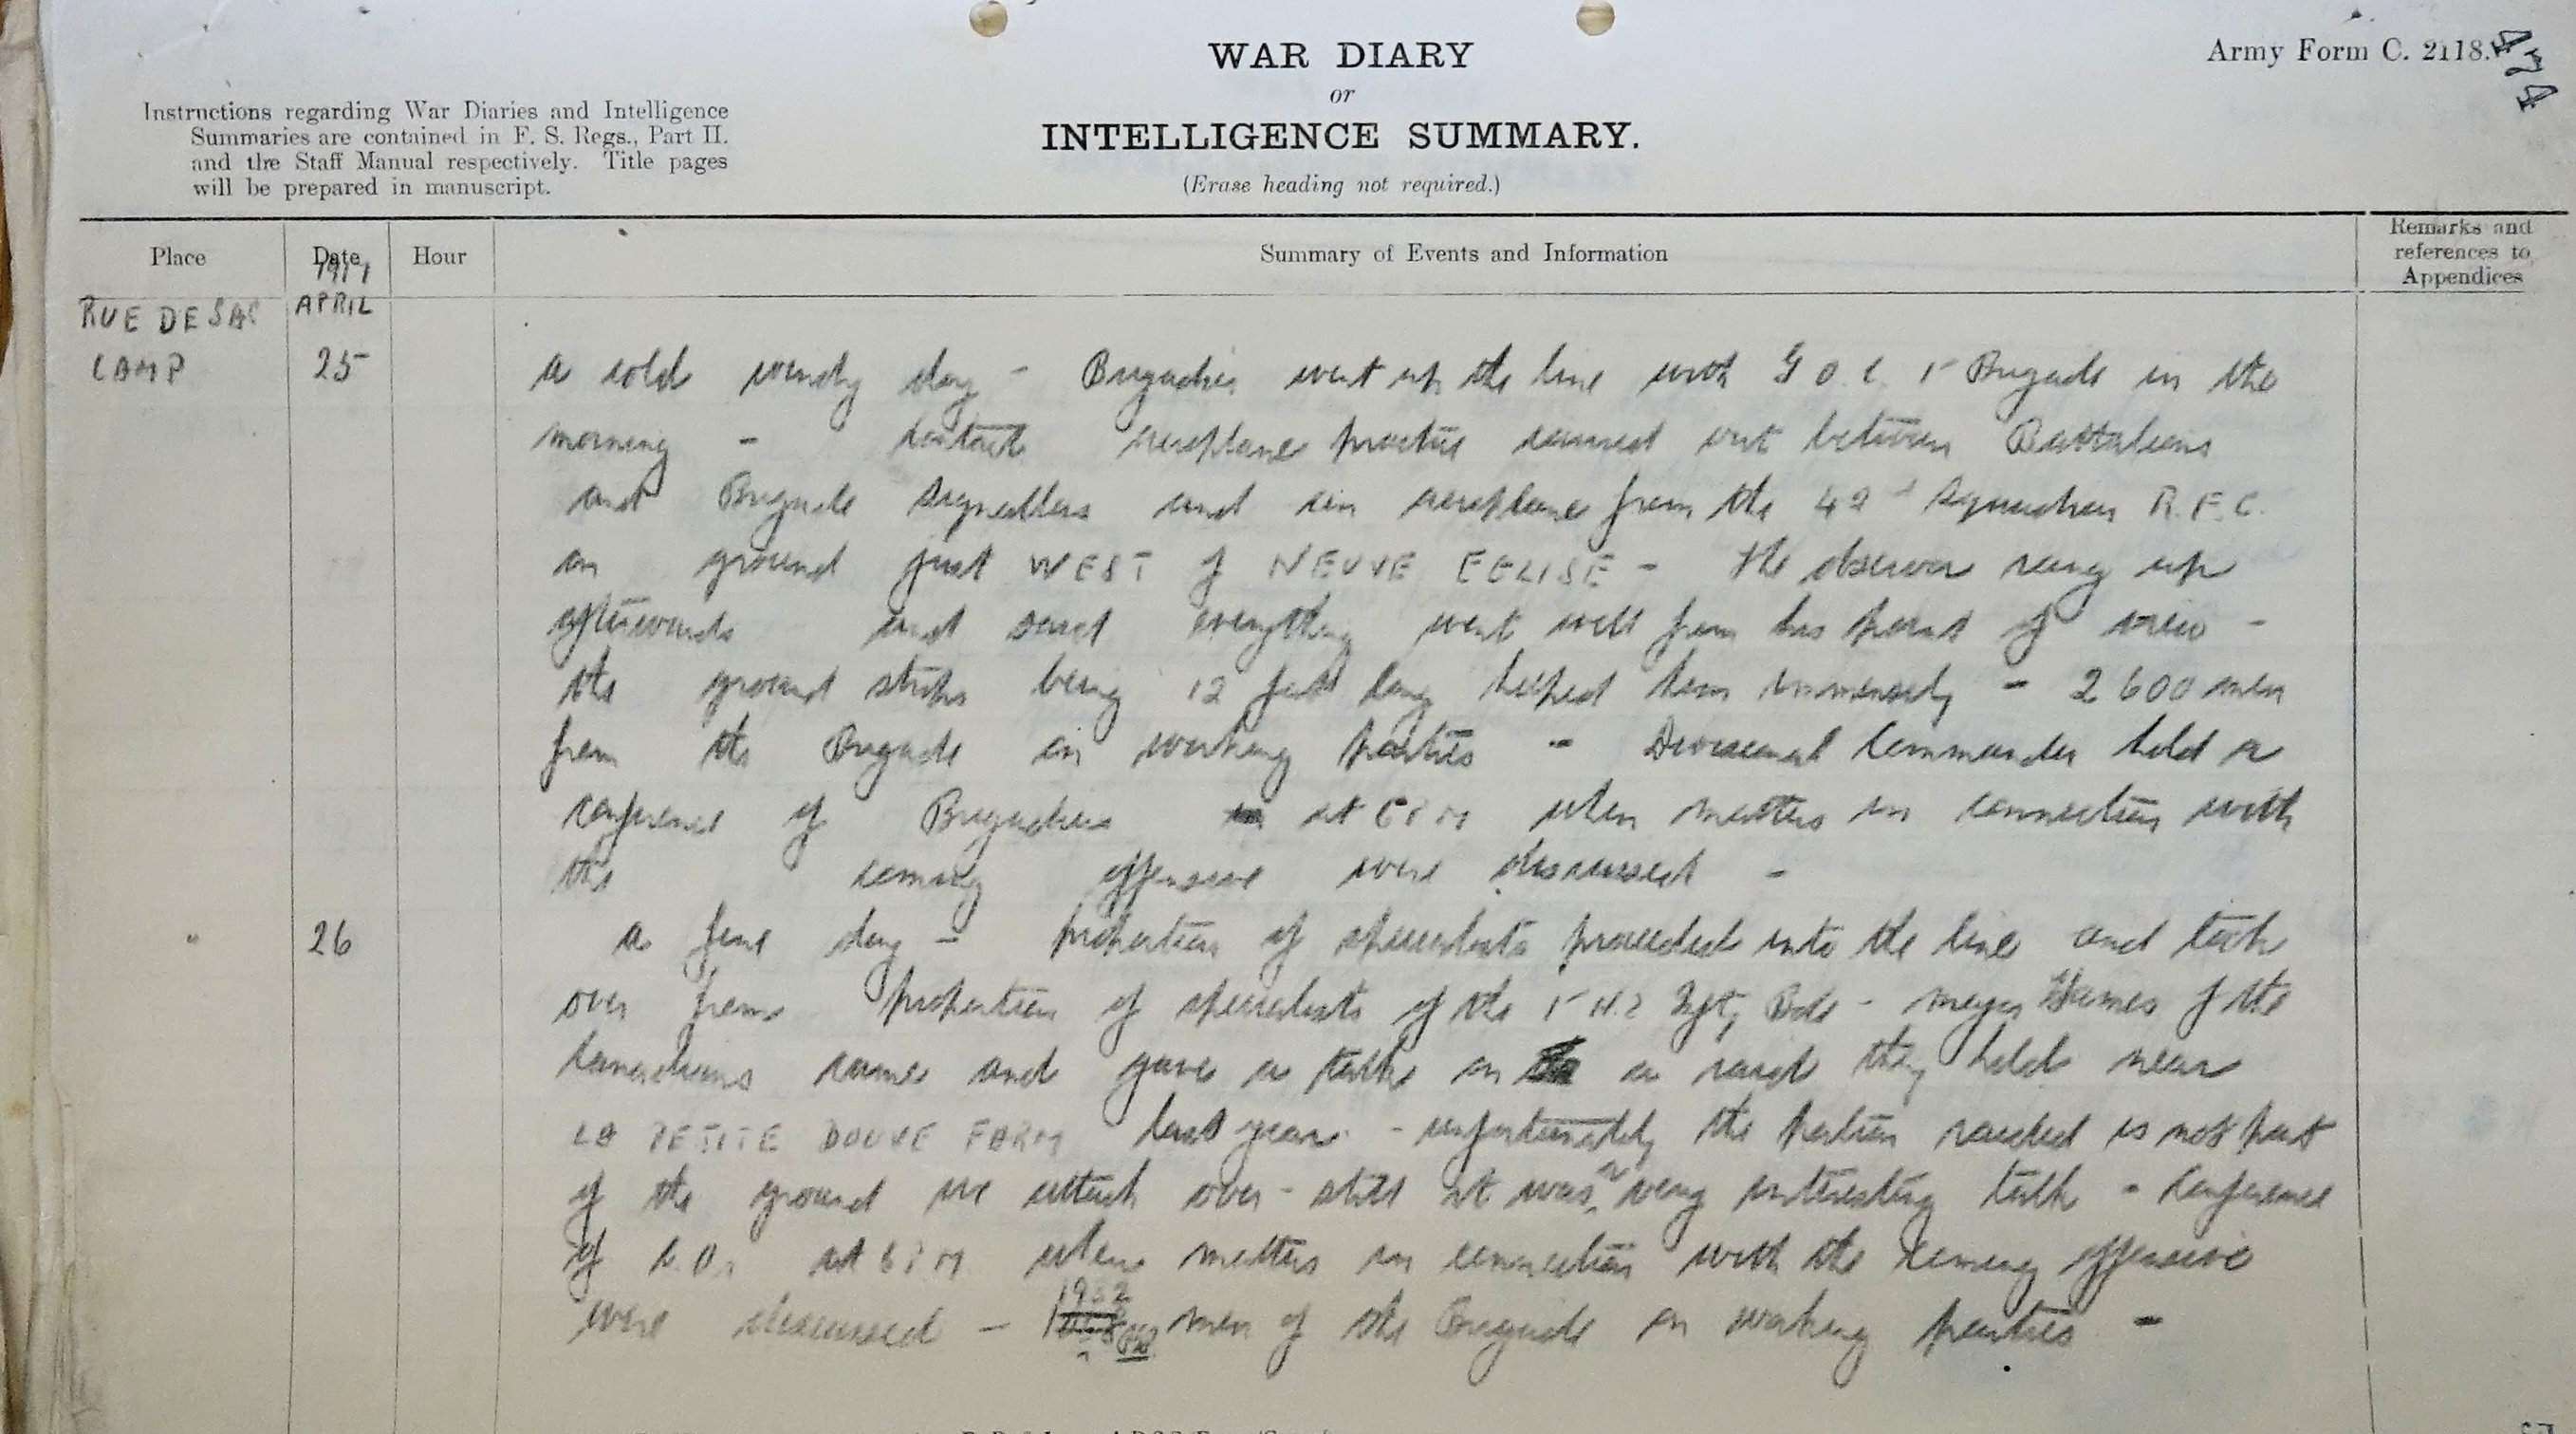 WAR DIARY
or
INTELLIGENCE SUMMARY.
(Erase heading not required.)
Army Form C. 2118.
474
Instructions regarding War Diaries and Intelligence
Summaries are contained in F. S. Regs., Part II.
and the Staff Manual respectively. Title pages
will be prepared in manuscript.
Place Date Hour Summary of Events and Information Remarks and
references to
Appendices
1917
RUE DE SAC APRIL
CAMP 25 a cold windy day - Brigadier went up the line with G.O.C. 1st Brigade in the
morning - contact aeroplane practice carried out between Battalions
and Brigade signallers and an aeroplane from the 42d Squadron R.F.C.
on ground just WEST of NEUVE EGLISE - the observer rang up
afterwards and said everything went well from his point of view -
the ground strips being 12 feet long helped him immensely - 2600 men
from the Brigade on working parties - Divisional Commander held a
conference of Brigadiers at 6PM when matters in connection with
the coming offensive were discussed -
" 26 a fine day - proportion of specialists proceeded into the line and took
over from proportion of specialists of the 1st N.Z. Bde - major of the
Canadians came and gave a talk on a raid they held near
LA PETITE DOUVE FARM last year - unfortunately the portion raided is not part
of the ground we attack over - still it was a very interesting talk - Conference
of C.Os at 6PM when matters in connection with the coming offensive
were discussed - 1952 men of the Brigade on working parties -